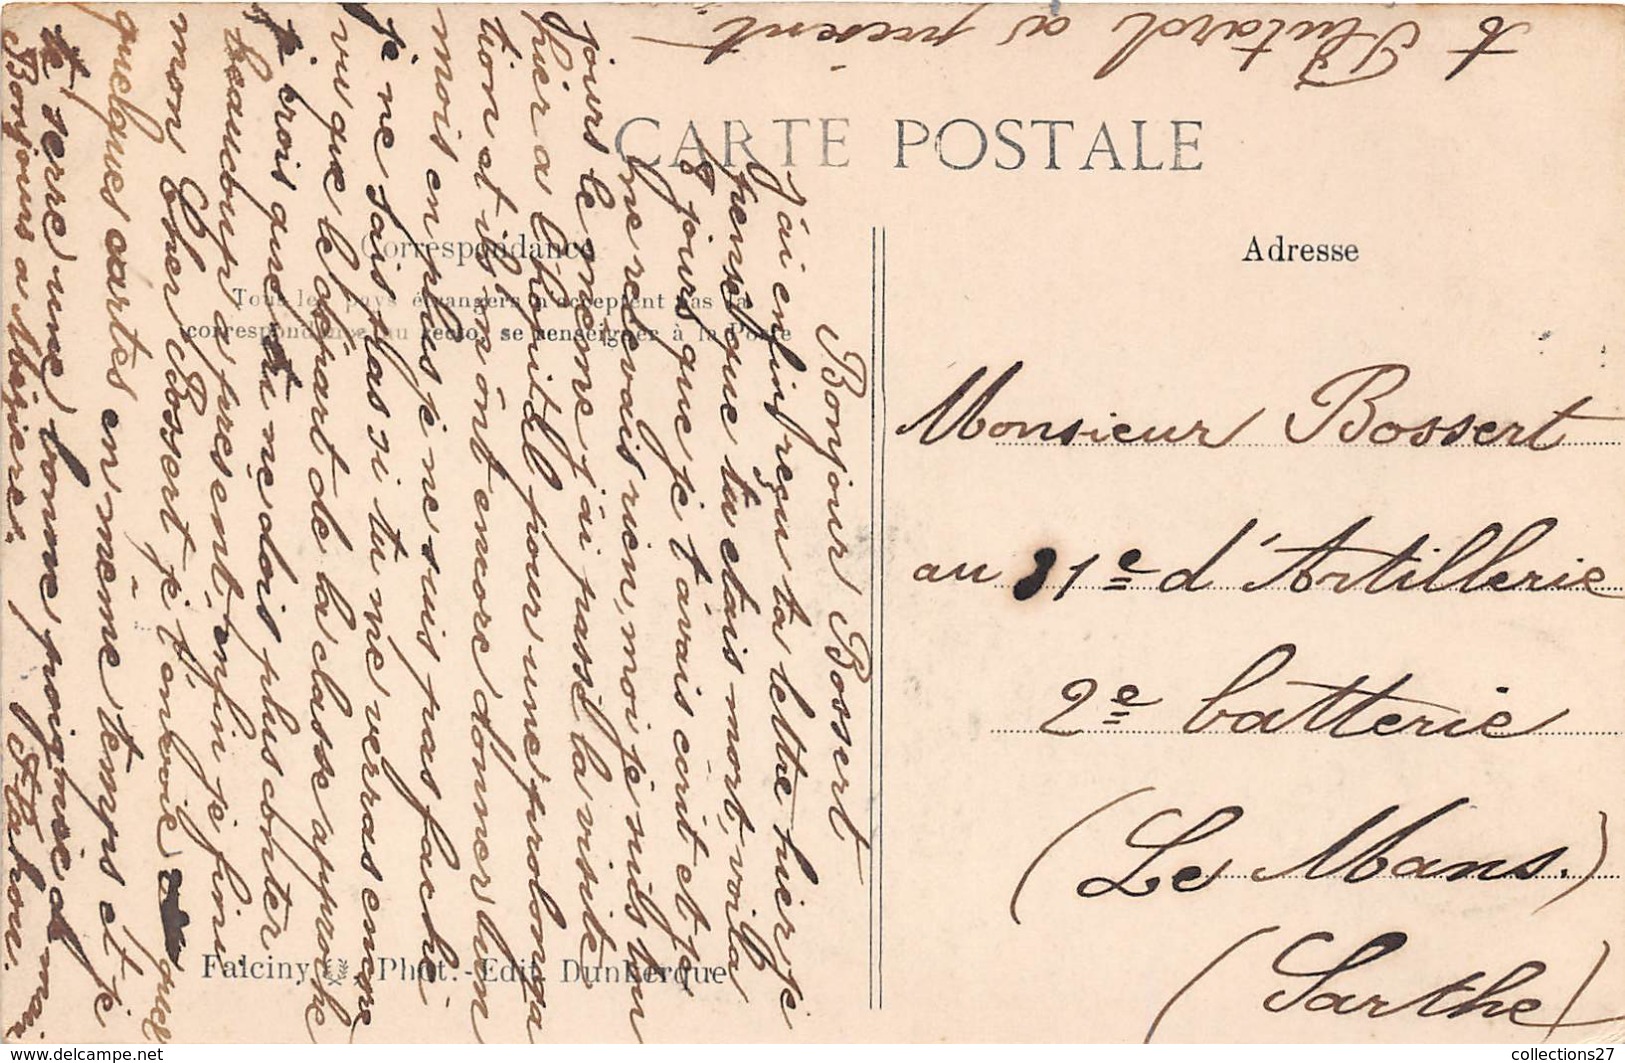 à présent
CARTE POSTALE
Correspondance
Tous les pays étrangers n'acceptent pas la
correspondance au recto, se renseigner à la Poste
Adresse
Monsieur Bossert
au 31e d'Artillerie
2e batterie
(Le Mans.)
(Sarthe)
Bonjour Bossert
J'ai enfin reçu ta lettre hier je
pensé que tu étais mort, voila
8 jours que je t'avais écrit et je
ne recevais rien, moi je suis tou
jours le même j'ai passé la visite
hier a l'hopital pour une prolonga
tion et ils m'ont encore donner un
mois en plus je ne suis pas faché
je ne sais pas si tu me verras encore
vu que le départ de la classe approche
je crois que tu ne dois plus conter
beaucoup a présent, enfin je finis
mon Cher Bossert je t'envoie que
quelques cartes en même temps et je
te serre une bonne poignée d main
Bonjours a Mézière.
Falciny, Phot.-Edit. Dunkerque
www.delcampe.net
collections27